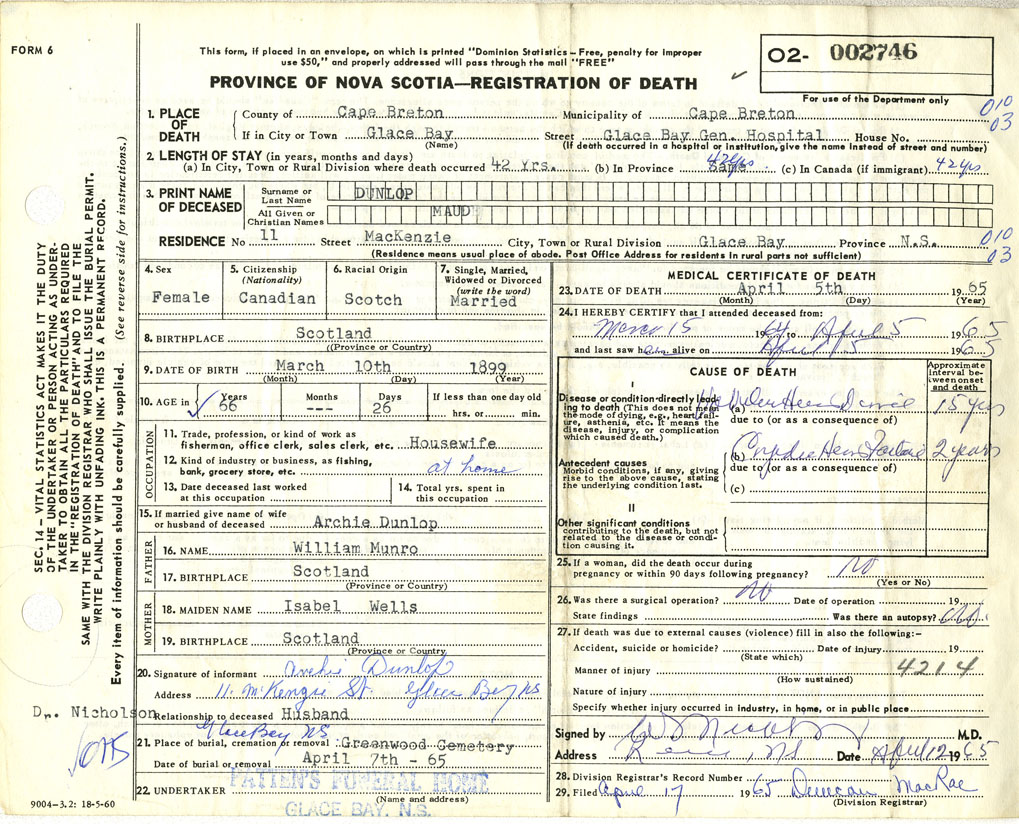 FORM 6
This form, if placed in an envelope, on which is printed "Dominion Statistics – Free, penalty for improper
use $50," and properly addressed will pass through the mail "FREE"
PROVINCE OF NOVA SCOTIA—REGISTRATION OF DEATH
02- 002746
For use of the Department only
010
03
1. PLACE OF DEATH
County of Cape Breton Municipality of Cape Breton
If in City or Town Glace Bay Street Glace Bay Gen. Hospital House No.
(Name) (If death occurred in a hospital or institution, give the name instead of street and number)
2. LENGTH OF STAY (in years, months and days)
(a) In City, Town or Rural Division where death occurred 42 Yrs. (b) In Province 42 yrs (c) In Canada (if immigrant) 42 yrs
3. PRINT NAME OF DECEASED
Surname or Last Name DUNLOP
All Given or Christian Names MAUD
RESIDENCE No 11 Street MacKenzie City, Town or Rural Division Glace Bay Province N.S.
(Residence means usual place of abode. Post Office Address for residents in rural parts not sufficient)
010
03
4. Sex
Female
5. Citizenship
(Nationality)
Canadian
6. Racial Origin
Scotch
7. Single, Married, Widowed or Divorced
(write the word)
Married
8. BIRTHPLACE Scotland
(Province or Country)
9. DATE OF BIRTH March 10th 1899
(Month) (Day) (Year)
10. AGE in Years 66 Months --- Days 26 If less than one day old
hrs. or min.
OCCUPATION
11. Trade, profession, or kind of work as
fisherman, office clerk, sales clerk, etc. Housewife
12. Kind of industry or business, as fishing,
bank, grocery store, etc. at home
13. Date deceased last worked
at this occupation
14. Total yrs. spent in
this occupation
15. If married give name of wife
or husband of deceased Archie Dunlop
FATHER
16. NAME William Munro
17. BIRTHPLACE Scotland
(Province or Country)
MOTHER
18. MAIDEN NAME Isabel Wells
19. BIRTHPLACE Scotland
(Province or Country)
20. Signature of informant Archie Dunlop
Address 11 McKenzie St. Glace Bay NS
Dr. Nicholson
Relationship to deceased Husband
Glace Bay NS
21. Place of burial, cremation or removal Greenwood Cemetery
Date of burial or removal April 7th - 65
22. UNDERTAKER PATTEN'S FUNERAL HOME
(Name and address)
GLACE BAY, N.S.
9004–3.2: 18-5-60
MEDICAL CERTIFICATE OF DEATH
23. DATE OF DEATH April 5th 1965
(Month) (Day) (Year)
24. I HEREBY CERTIFY that I attended deceased from:
March 15 1964 to April 5 1965
and last saw h alive on April 5 1965
CAUSE OF DEATH
Approximate interval between onset and death
I
Disease or condition directly leading to death (This does not mean the mode of dying, e.g., heart failure, asthenia, etc. It means the disease, injury, or complication which caused death.)
(a) Heart Disease 15 yrs
due to (or as a consequence of)
Antecedent causes
Morbid conditions, if any, giving rise to the above cause, stating the underlying condition last.
(b) Heart Failure 2 years
due to (or as a consequence of)
(c)
II
Other significant conditions
contributing to the death, but not related to the disease or condition causing it.
25. If a woman, did the death occur during
pregnancy or within 90 days following pregnancy? No
(Yes or No)
26. Was there a surgical operation? No Date of operation 19
State findings Was there an autopsy? No
27. If death was due to external causes (violence) fill in also the following:–
Accident, suicide or homicide? Date of injury 19
(State which)
Manner of injury 4214
(How sustained)
Nature of injury
Specify whether injury occurred in industry, in home, or in public place
Signed by M.D.
Address NS Date April 12 1965
28. Division Registrar's Record Number
29. Filed April 17 1965 Duncan MacRae
(Division Registrar)
SEC. 14 – VITAL STATISTICS ACT MAKES IT THE DUTY
OF THE UNDERTAKER OR PERSON ACTING AS UNDER-
TAKER TO OBTAIN ALL THE PARTICULARS REQUIRED
IN THE "REGISTRATION OF DEATH" AND TO FILE THE
SAME WITH THE DIVISION REGISTRAR WHO SHALL ISSUE THE BURIAL PERMIT.
WRITE PLAINLY WITH UNFADING INK. THIS IS A PERMANENT RECORD.
Every item of information should be carefully supplied. (See reverse side for instructions.)